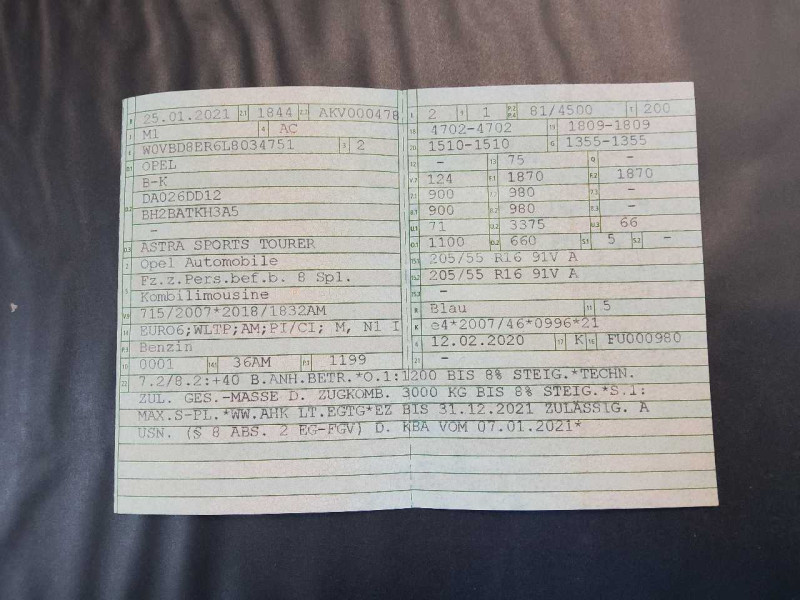 B 25.01.2021 2.1 1844 2.2 AKV000478
J M1 4 AC
E W0VBD8ER6L8034751 3 2
D.1 OPEL
B-K
D.2 DA026DD12
BH2BATKH3A5
–
D.3 ASTRA SPORTS TOURER
2 Opel Automobile
5 Fz.z.Pers.bef.b. 8 Spl.
Kombilimousine
V.9 715/2007*2018/1832AM
14 EURO6;WLTP;AM;PI/CI; M, N1 I
P.3 Benzin
10 0001 14.1 36AM P.1 1199
L 2 9 1 P.2 P.4 81/4500 T 200
18 4702-4702 19 1809-1809
20 1510-1510 G 1355-1355
12 – 13 75 Q –
V.7 124 F.1 1870 F.2 1870
7.1 900 7.2 980 7.3 –
8.1 900 8.2 980 8.3 –
U.1 71 U.2 3375 U.3 66
O.1 1100 O.2 660 S.1 5 S.2 –
15.1 205/55 R16 91V A
15.2 205/55 R16 91V A
15.3 –
R Blau 11 5
K e4*2007/46*0996*21
6 12.02.2020 17 K 16 FU000980
21 –
22 7.2/8.2:+40 B.ANH.BETR.*O.1:1200 BIS 8% STEIG.*TECHN.
ZUL. GES.-MASSE D. ZUGKOMB. 3000 KG BIS 8% STEIG.*S.1:
MAX.S-PL.*WW.AHK LT.EGTG*EZ BIS 31.12.2021 ZULÄSSIG. A
USN. (§ 8 ABS. 2 EG-FGV) D. KBA VOM 07.01.2021*